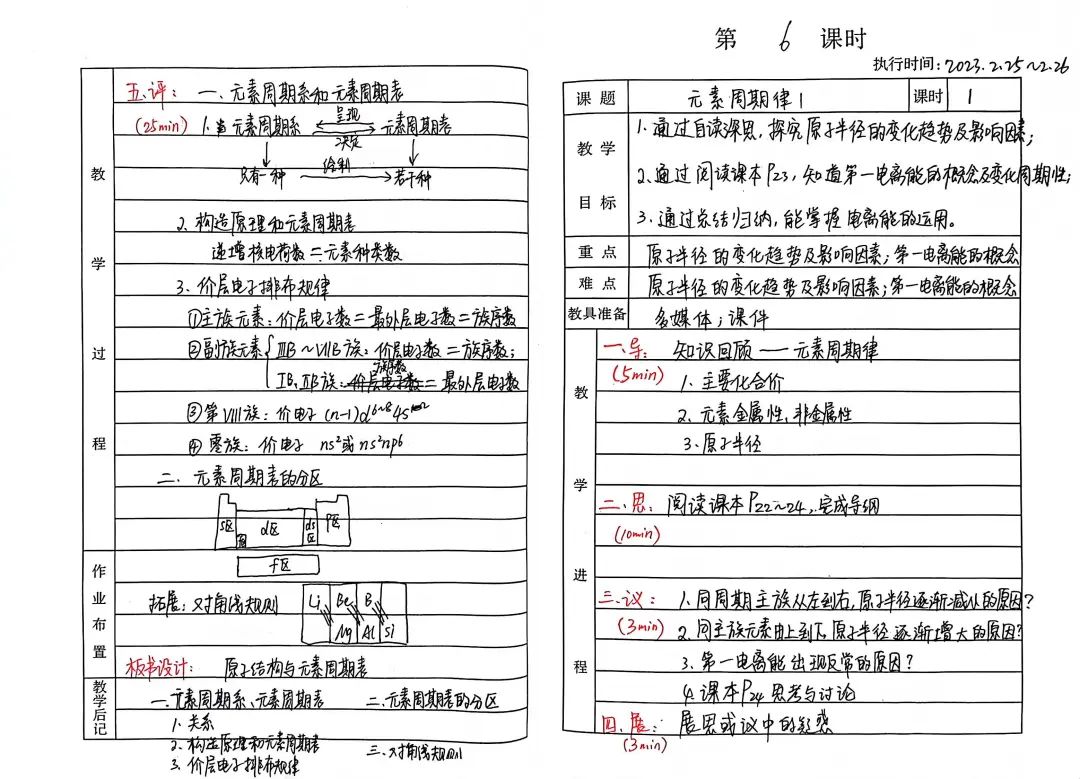 五.评：一、元素周期系和元素周期表
(25min) 1. 元素周期系 呈现 元素周期表
决定
只有一种 绘制 若干种
2. 构造原理和元素周期表
递增核电荷数＝元素种类数
3. 价层电子排布规律
①主族元素：价层电子数＝最外层电子数＝族序数
②副族元素 ⅢB～ⅦB族：价层电子数＝族序数；
族序数
ⅠB、ⅡB族：价层电子数＝最外层电子数
③第Ⅷ族：价电子 (n-1)d⁶～⁸
④零族：价电子 ns²或ns²np6
二、元素周期表的分区
s区 d区 ds区 p区
f区
拓展：对角线规则
Li Be B
Mg Al Si
板书设计：原子结构与元素周期表
一.元素周期系、元素周期表 二.元素周期表的分区
1. 关系
2. 构造原理和元素周期表 三.对角线规则
3. 价层电子排布规律
教学过程
作业布置
教学后记
第 6 课时
执行时间：2023.2.25~2.26
课题 元素周期律1 课时 1
教学目标
1.通过自读深思，探究原子半径的变化趋势及影响因素；
2.通过阅读课本P23，知道第一电离能的概念及变化周期性；
3.通过总结归纳，能掌握电离能的运用。
重点 原子半径的变化趋势及影响因素；第一电离能的概念
难点 原子半径的变化趋势及影响因素；第一电离能的概念
教具准备 多媒体；课件
教学进程
一.导：知识回顾——元素周期律
(5min) 1. 主要化合价
2. 元素金属性、非金属性
3. 原子半径
二.思：阅读课本P22～24，完成导纲
(10min)
三.议：1. 同周期主族从左到右，原子半径逐渐减小的原因？
(3min) 2. 同主族元素由上到下，原子半径逐渐增大的原因？
3. 第一电离能出现反常的原因？
4. 课本P24思考与讨论
四.展：展思或议中的疑惑
(3min)